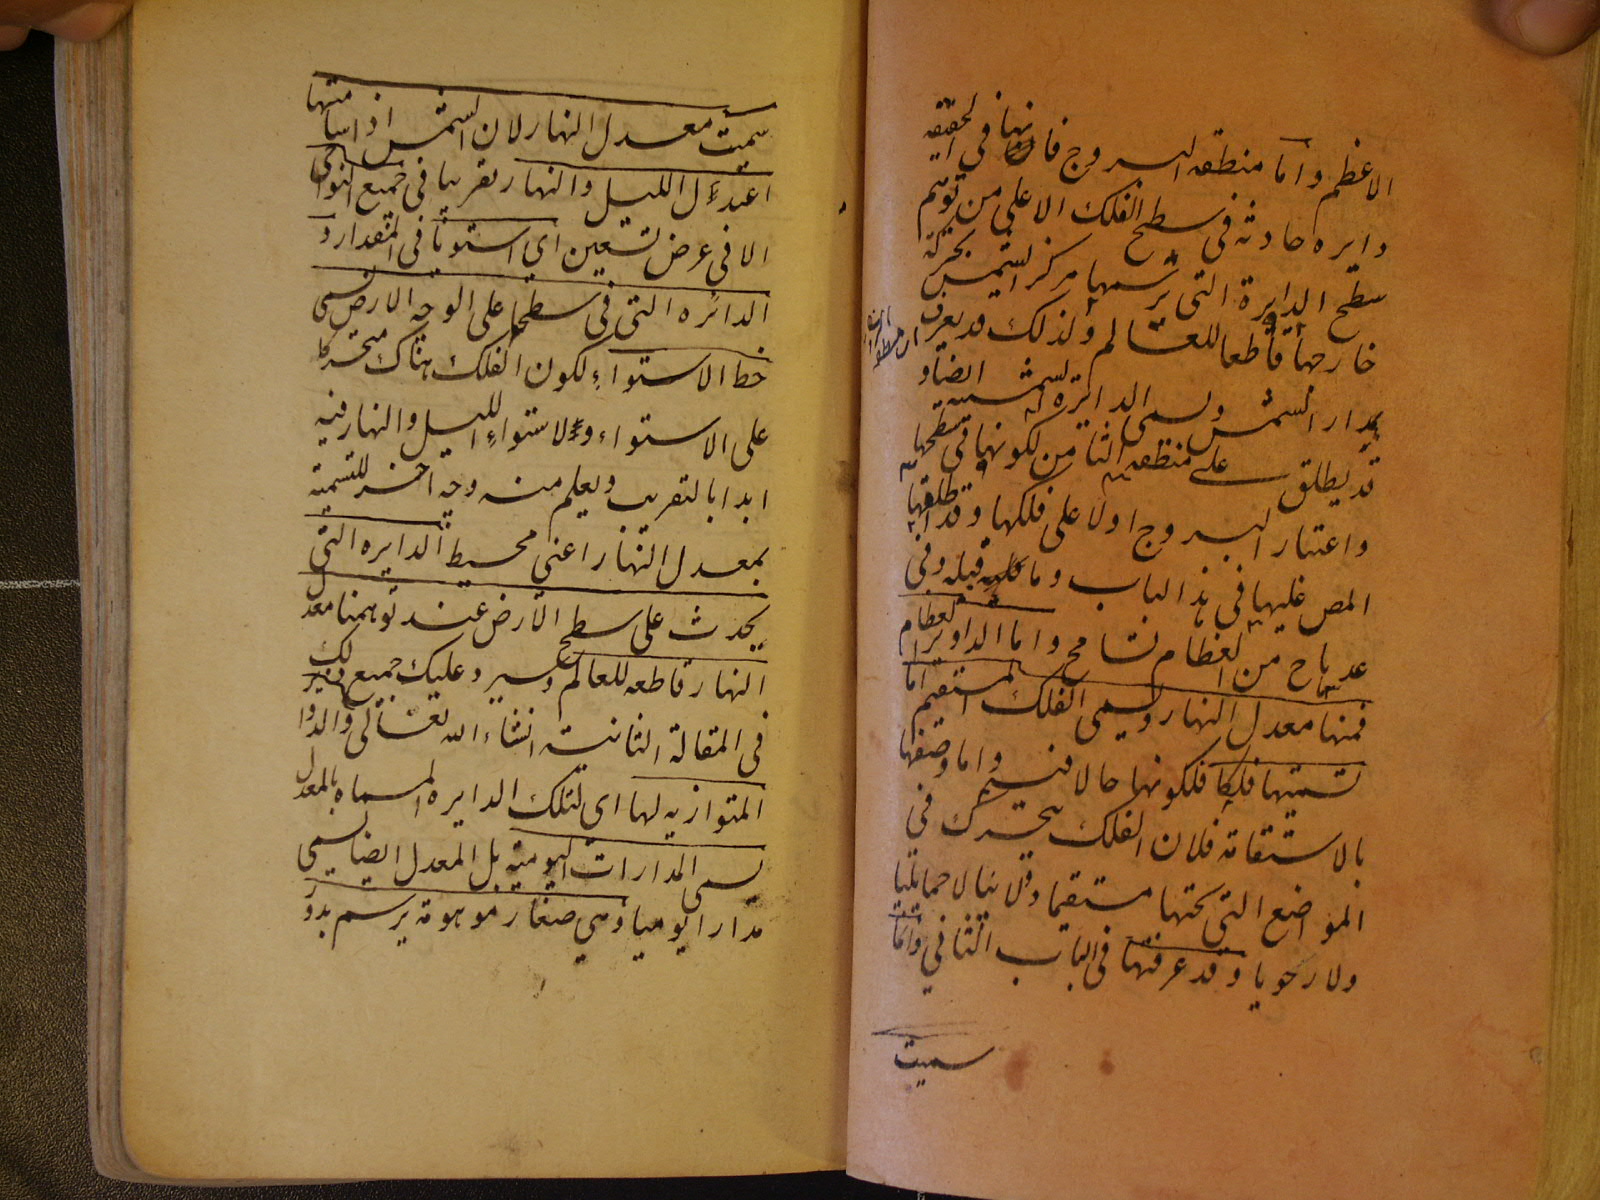 الاعظم واما منطقه البروج فانها فى الحقيقه
دايره حادثه فى سطح الفلك الاعلى من توهم
سطح الدايرة التى ترسمها مركز الشمس بحركة
خارجها قاطعا للعالم ولذلك قد يعرف
بمدار الشمس وتسمى الدائرة الشمسيه ايضا و
قد يطلق على منطقه الثامن لكونها فى سطحها
واعتبار البروج اولا على فلكها وقد اطلقها
المص عليها فى هذا الباب وما قبله وفى
عدها من العظام تسامح واما الدواير العظام
فمنها معدل النهار ويسمى الفلك المستقيم اما
تسميتها فلكا فلكونها حالا فيه واما وصفها
بالاستقامة فلان الفلك يتحرك فى
المواضع التى تحتها مستقيما دولابيا لا حمايليا
ولا رحويا وقد عرفتها فى الباب الثانى وانما
سميت
سميت معدل النهار لان الشمس اذا سامتتها
اعتدل الليل والنهار تقريبا فى جميع النواحى
الا فى عرض تسعين اى استويا فى المقدار و
الدائره التى فى سطحها على الوجه الارض تسمى
خط الاستواء لكون الفلك هناك متحركا
على الاستواء ولاستواء الليل والنهار فيه
ابدا بالتقريب ويعلم منه وجه اخر للتسمية
بمعدل النهار اعنى محيط الدايره التى
يحدث على سطح الارض عند توهمنا معدل
النهار قاطعه للعالم وسيرد عليك جميع ذلك
فى المقالة الثانية انشاء الله تعالى والدوائر
المتوازيه لها اى لتلك الدايره المسماه بالمعدل
تسمى المدارات اليومية بل المعدل ايضا يسمى
مدارا يوميا وهى صغار موهومة يرسم بدو